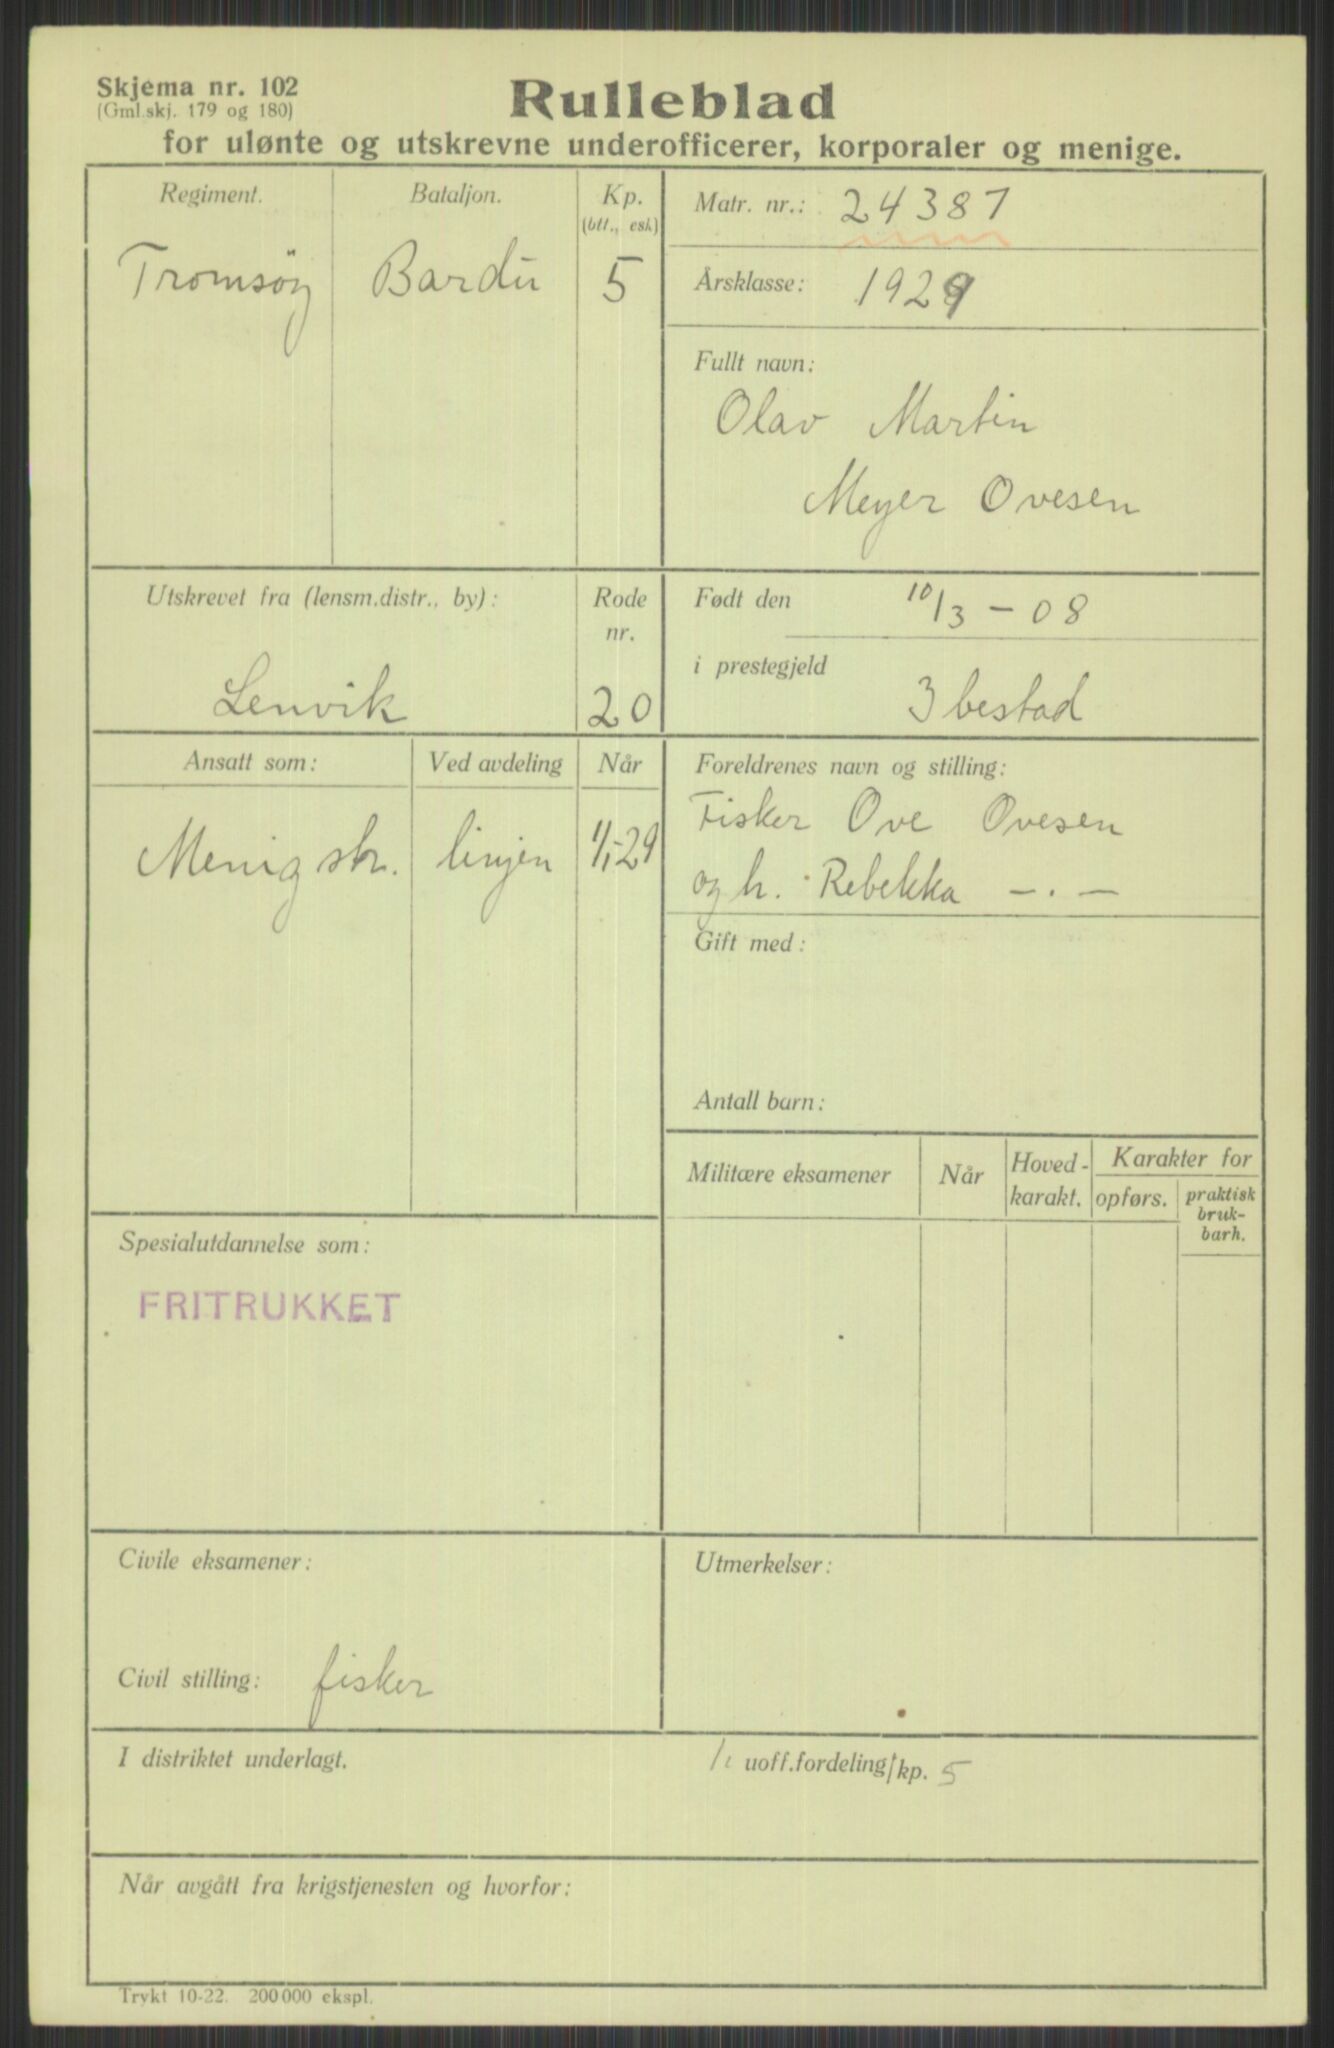 Skjema nr. 102
(Gml.skj. 179 og 180)
Rulleblad
for ulønte og utskrevne underofficerer, korporaler og menige.
Regiment. Bataljon. Kp.
(btt., esk)
Tromsøy Bardu 5
Matr. nr.: 24387
Årsklasse: 1929
Fullt navn:
Olav Martin
Meyer Ovesen
Utskrevet fra (lensm.distr., by): Rode
nr.
Lenvik 20
Født den 10/3 - 08
i prestegjeld Ibestad
Ansatt som: Ved avdeling Når
Menig str. linjen 1/1-29
Foreldrenes navn og stilling:
Fisker Ove Ovesen
og h. Rebekka — . —
Gift med:
Antall barn:
Militære eksamener Når Hoved-
karakt. Karakter for
opførs. praktisk
bruk-
barh.
Spesialutdannelse som:
FRITRUKKET
Civile eksamener:
Civil stilling: fisker
Utmerkelser:
I distriktet underlagt. uoff.fordeling/kp. 5
Når avgått fra krigstjenesten og hvorfor:
Trykt 10-22. 200 000 ekspl.